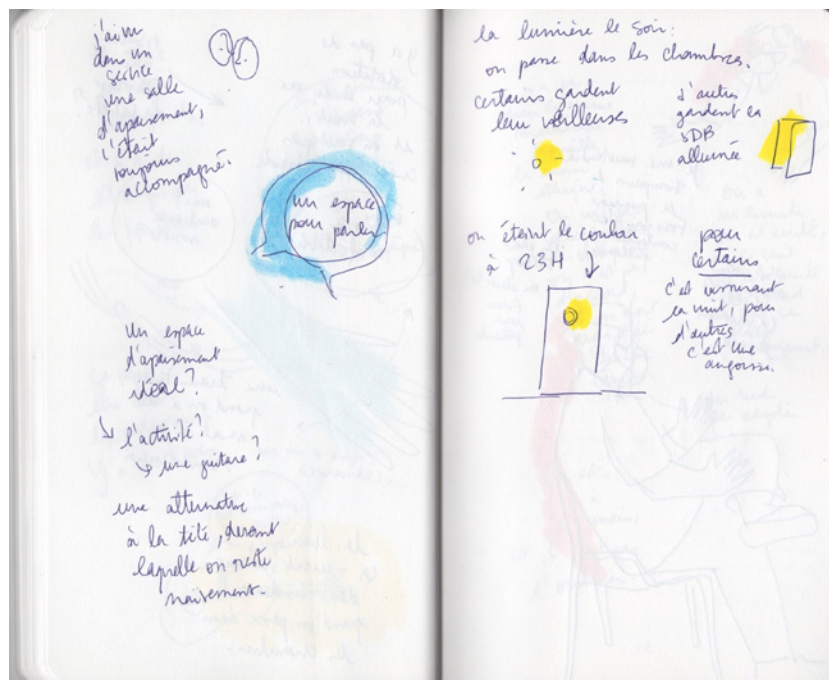 j'ai vu
dans un
service
une salle
d'apaisement,
c'était
toujours
accompagné.
un espace
pour parler
Un espace
d'apaisement
idéal ?
↳ l'activité ?
↳ une guitare ?
une alternative
à la télé, devant
laquelle on reste
la lumière le soir :
on passe dans les chambres.
certains gardent
leur veilleuses
d'autres
gardent la
SDB
allumée
on éteint le couloir
à 23H
pour
certains
c'est
la nuit, pour
d'autres
c'est une
angoisse.